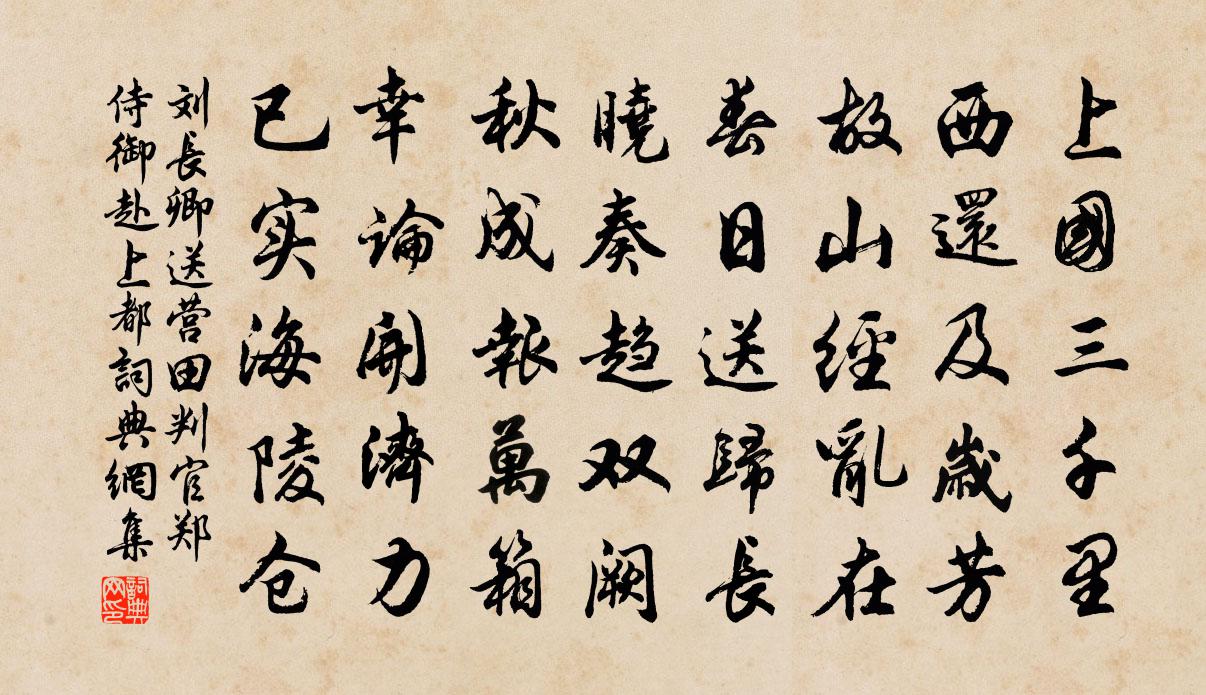 上國三千里
西還及歲芳
故山經亂在
春日送歸長
曉奏趋双阙
秋成報萬箱
幸論開濟力
已实海陵仓
刘長卿送营田判官郑
侍御赴上都詞典網集
詞典网印